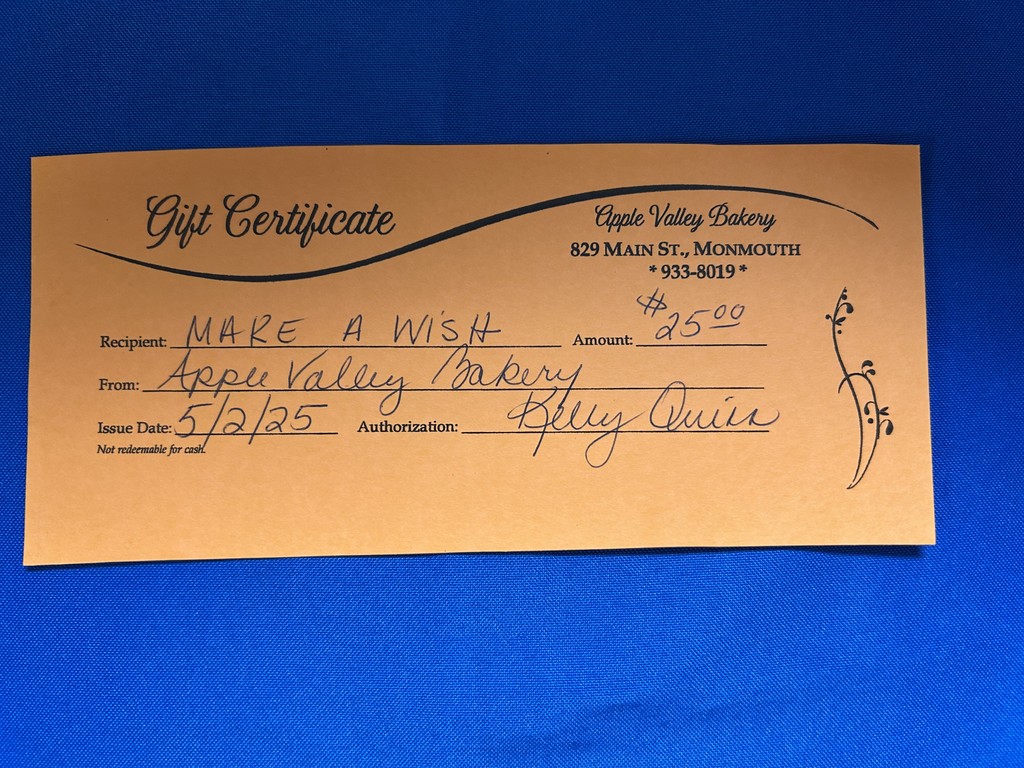 Gift Certificate
Apple Valley Bakery
829 Main St., Monmouth
* 933-8019 *
Recipient: MAKE A WISH Amount: $25.00
From: Apple Valley Bakery
Issue Date: 5/2/25 Authorization: Kelly Quinn
Not redeemable for cash.